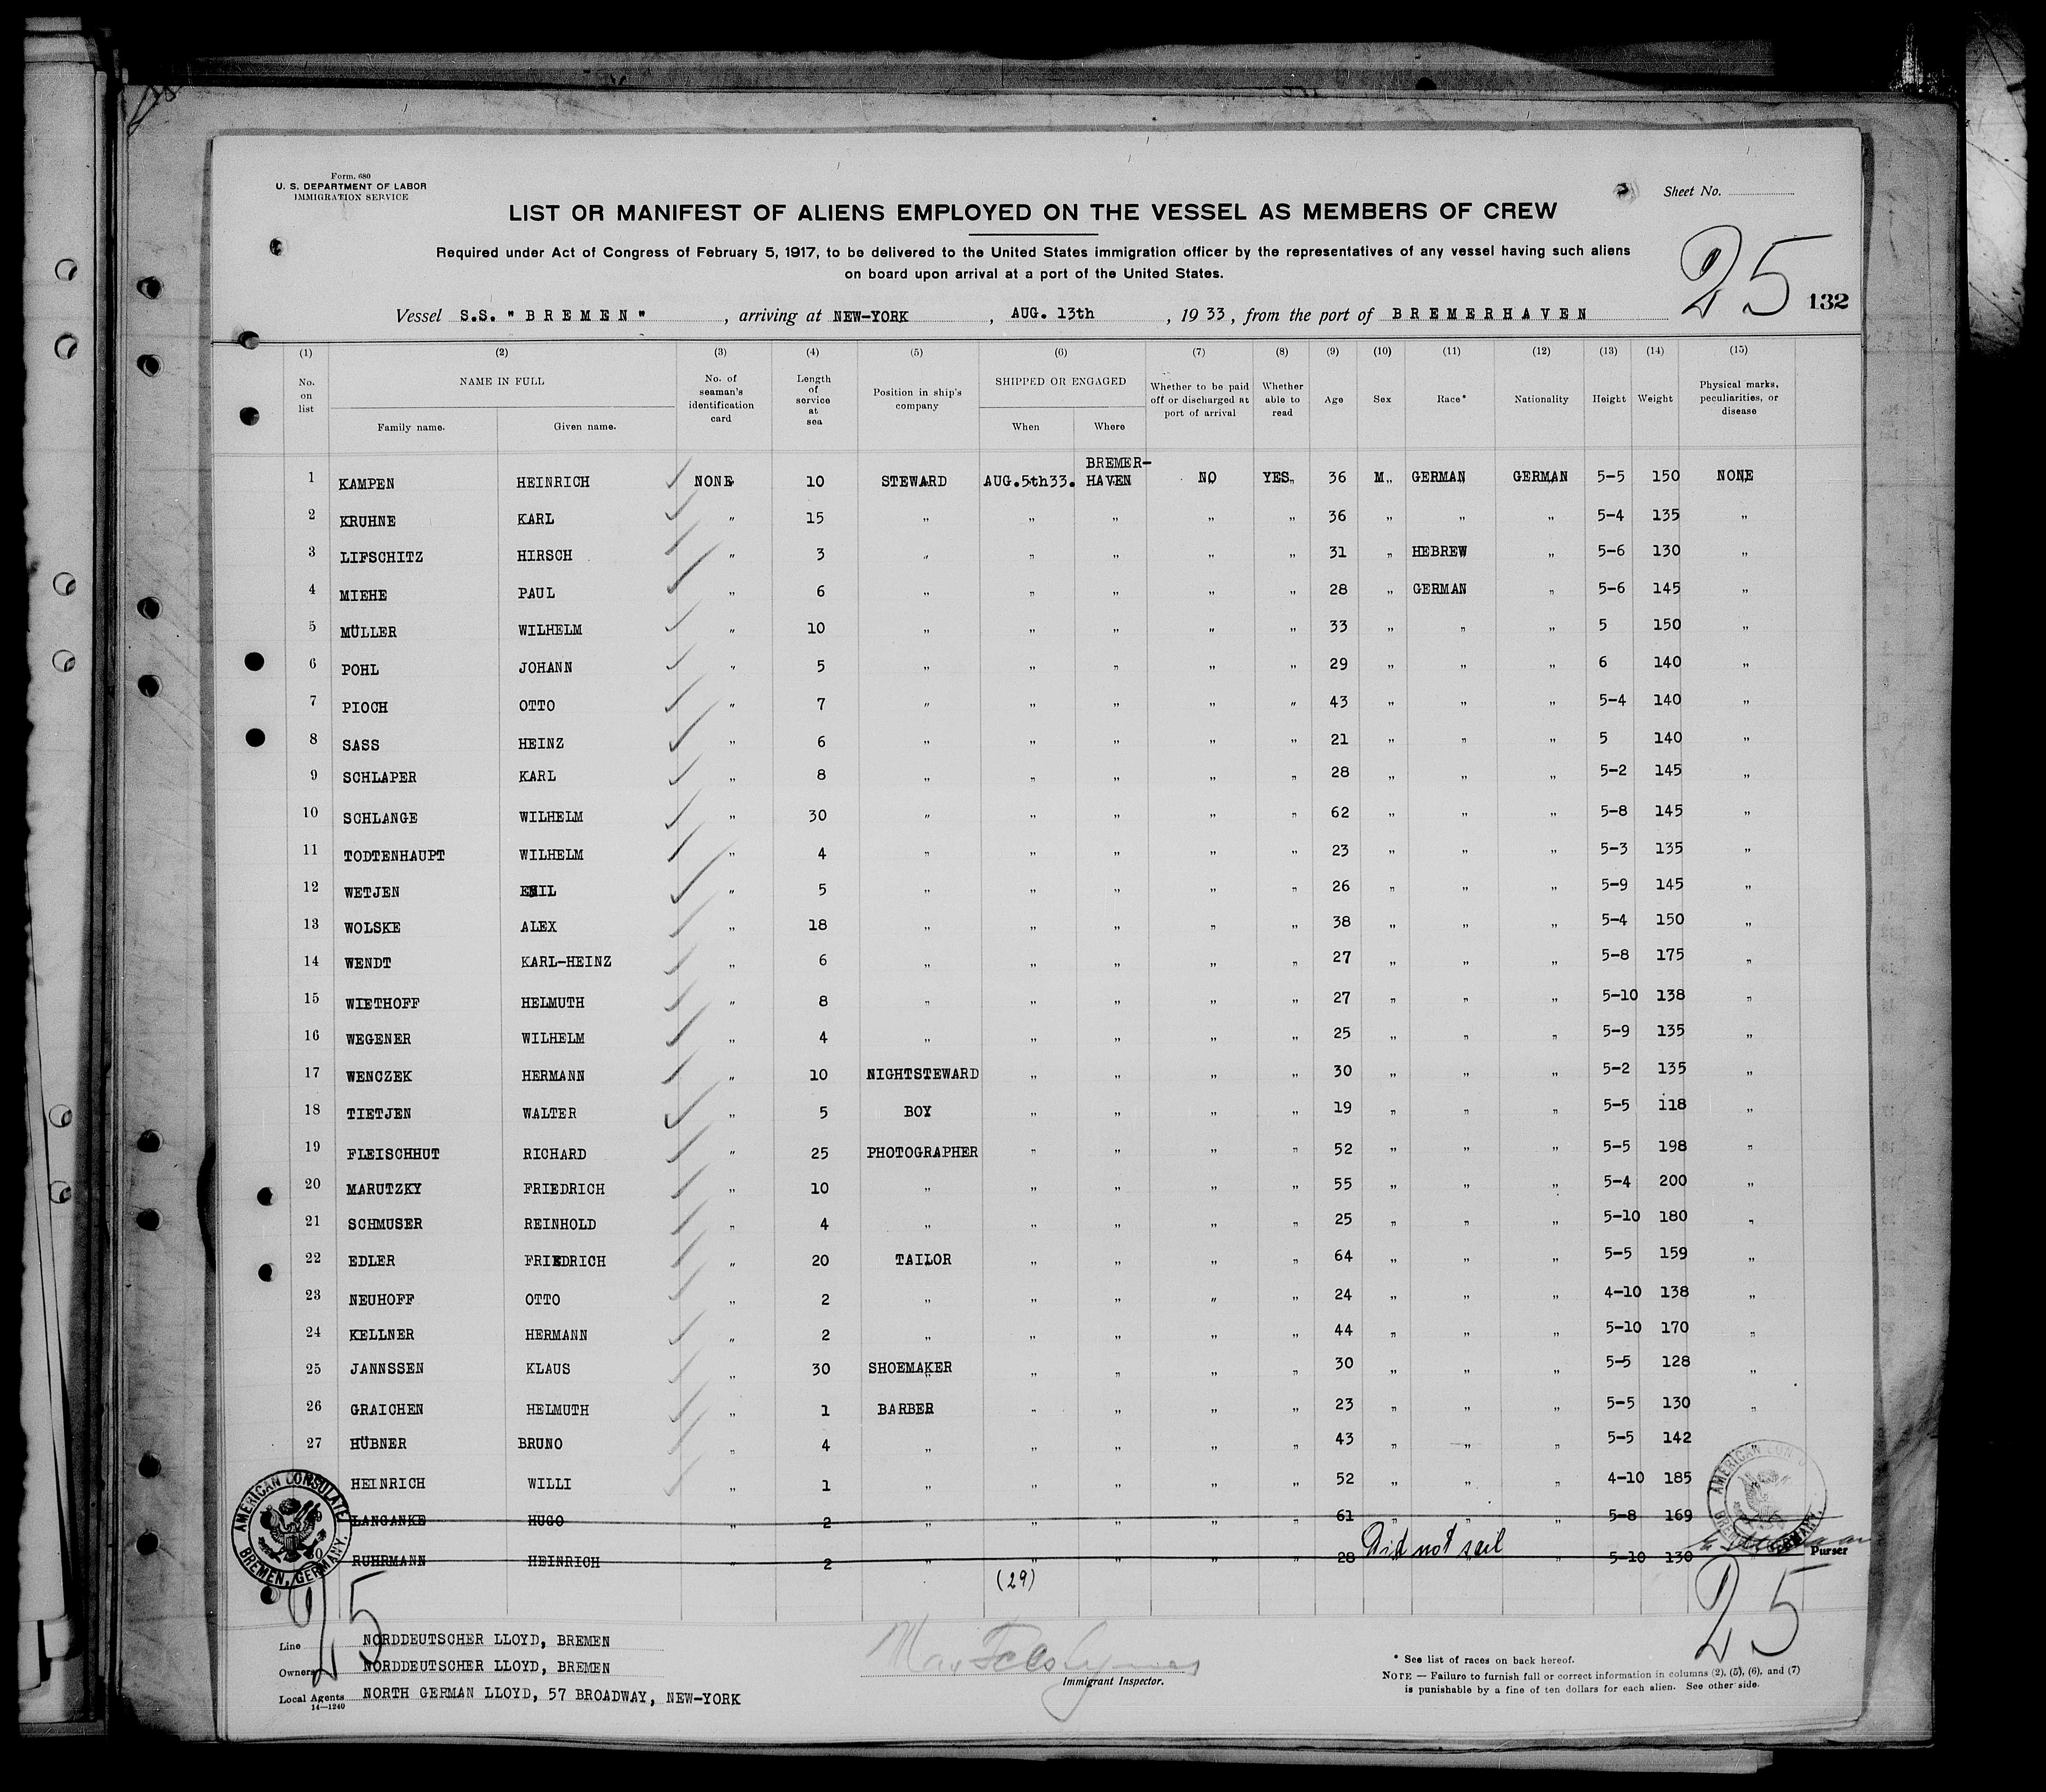 Form. 680
U. S. DEPARTMENT OF LABOR
IMMIGRATION SERVICE
Sheet No.
LIST OR MANIFEST OF ALIENS EMPLOYED ON THE VESSEL AS MEMBERS OF CREW
Required under Act of Congress of February 5, 1917, to be delivered to the United States immigration officer by the representatives of any vessel having such aliens
on board upon arrival at a port of the United States.
25
132
Vessel S.S. " B R E M E N " , arriving at NEW-YORK , AUG. 13th , 19 33, from the port of B R E M E R H A V E N
(1) (2) (3) (4) (5) (6) (7) (8) (9) (10) (11) (12) (13) (14) (15)
No. on list NAME IN FULL Family name. Given name. No. of seaman's identification card Length of service at sea Position in ship's company SHIPPED OR ENGAGED When Where Whether to be paid off or discharged at port of arrival Whether able to read Age Sex Race* Nationality Height Weight Physical marks, peculiarities, or disease
1 KAMPEN HEINRICH NONE 10 STEWARD AUG.5th33. BREMER-HAVEN NO YES 36 M GERMAN GERMAN 5-5 150 NONE
2 KRUHNE KARL " 15 " " " " " 36 " " " 5-4 135 "
3 LIFSCHITZ HIRSCH " 3 " " " " " 31 " HEBREW " 5-6 130 "
4 MIEHE PAUL " 6 " " " " " 28 " GERMAN " 5-6 145 "
5 MÜLLER WILHELM " 10 " " " " " 33 " " " 5 150 "
6 POHL JOHANN " 5 " " " " " 29 " " " 6 140 "
7 PIOCH OTTO " 7 " " " " " 43 " " " 5-4 140 "
8 SASS HEINZ " 6 " " " " " 21 " " " 5 140 "
9 SCHLAPER KARL " 8 " " " " " 28 " " " 5-2 145 "
10 SCHLANGE WILHELM " 30 " " " " " 62 " " " 5-8 145 "
11 TODTENHAUPT WILHELM " 4 " " " " " 23 " " " 5-3 135 "
12 WETJEN EMIL " 5 " " " " " 26 " " " 5-9 145 "
13 WOLSKE ALEX " 18 " " " " " 38 " " " 5-4 150 "
14 WENDT KARL-HEINZ " 6 " " " " " 27 " " " 5-8 175 "
15 WIETHOFF HELMUTH " 8 " " " " " 27 " " " 5-10 138 "
16 WEGENER WILHELM " 4 " " " " " 25 " " " 5-9 135 "
17 WENCZEK HERMANN " 10 NIGHTSTEWARD " " " " 30 " " " 5-2 135 "
18 TIETJEN WALTER " 5 BOY " " " " 19 " " " 5-5 118 "
19 FLEISCHHUT RICHARD " 25 PHOTOGRAPHER " " " " 52 " " " 5-5 198 "
20 MARUTZKY FRIEDRICH " 10 " " " " " 55 " " " 5-4 200 "
21 SCHMUSER REINHOLD " 4 " " " " " 25 " " " 5-10 180 "
22 EDLER FRIEDRICH " 20 TAILOR " " " " 64 " " " 5-5 159 "
23 NEUHOFF OTTO " 2 " " " " " 24 " " " 4-10 138 "
24 KELLNER HERMANN " 2 " " " " " 44 " " " 5-10 170 "
25 JANNSSEN KLAUS " 30 SHOEMAKER " " " " 30 " " " 5-5 128 "
26 GRAICHEN HELMUTH " 1 BARBER " " " " 23 " " " 5-5 130 "
27 HÜBNER BRUNO " 4 " " " " " 43 " " " 5-5 142
HEINRICH WILLI 1 " " " " " 52 " " " 4-10 185
LANGANKE HUGO " 2 " " " " " 61 " " 5-8 169
RUHRMANN HEINRICH " 2 " " " " " 28 Did not sail " 5-10 130 Purser
AMERICAN CONSULATE BREMEN, GERMANY.
AMERICAN CON BREMEN, GERMANY.
(29)
25
25
Line NORDDEUTSCHER LLOYD, BREMEN
Owners NORDDEUTSCHER LLOYD, BREMEN
Local Agents NORTH GERMAN LLOYD, 57 BROADWAY, NEW-YORK
14—1240
Immigrant Inspector.
* See list of races on back hereof.
NOTE — Failure to furnish full or correct information in columns (2), (5), (6), and (7)
is punishable by a fine of ten dollars for each alien. See other side.